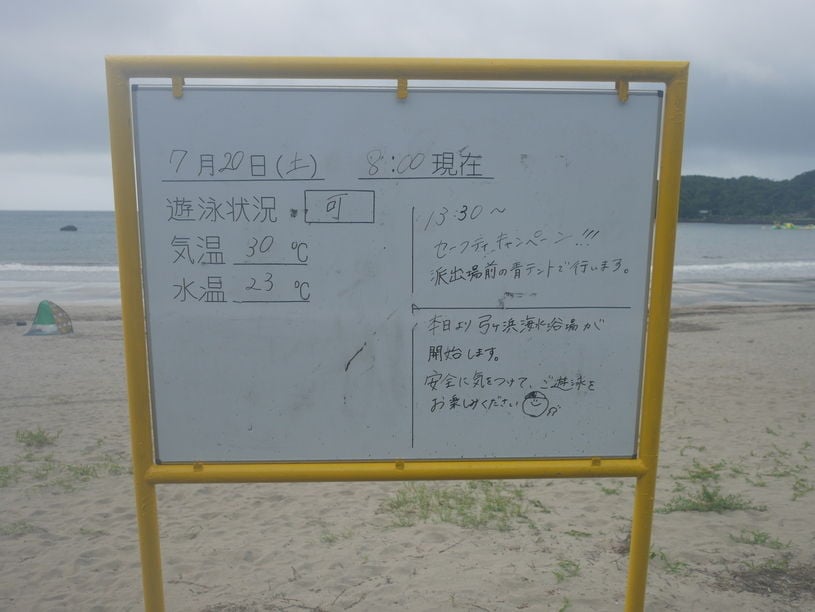 7月20日(土) 8:00現在
遊泳状況 可
気温 30 ℃
水温 23 ℃
13:30〜
セーフティキャンペーン!!!
派出場前の青テントで行います。
本日より弓ヶ浜海水浴場が
開始します。
安全に気をつけて、ご遊泳を
お楽しみください